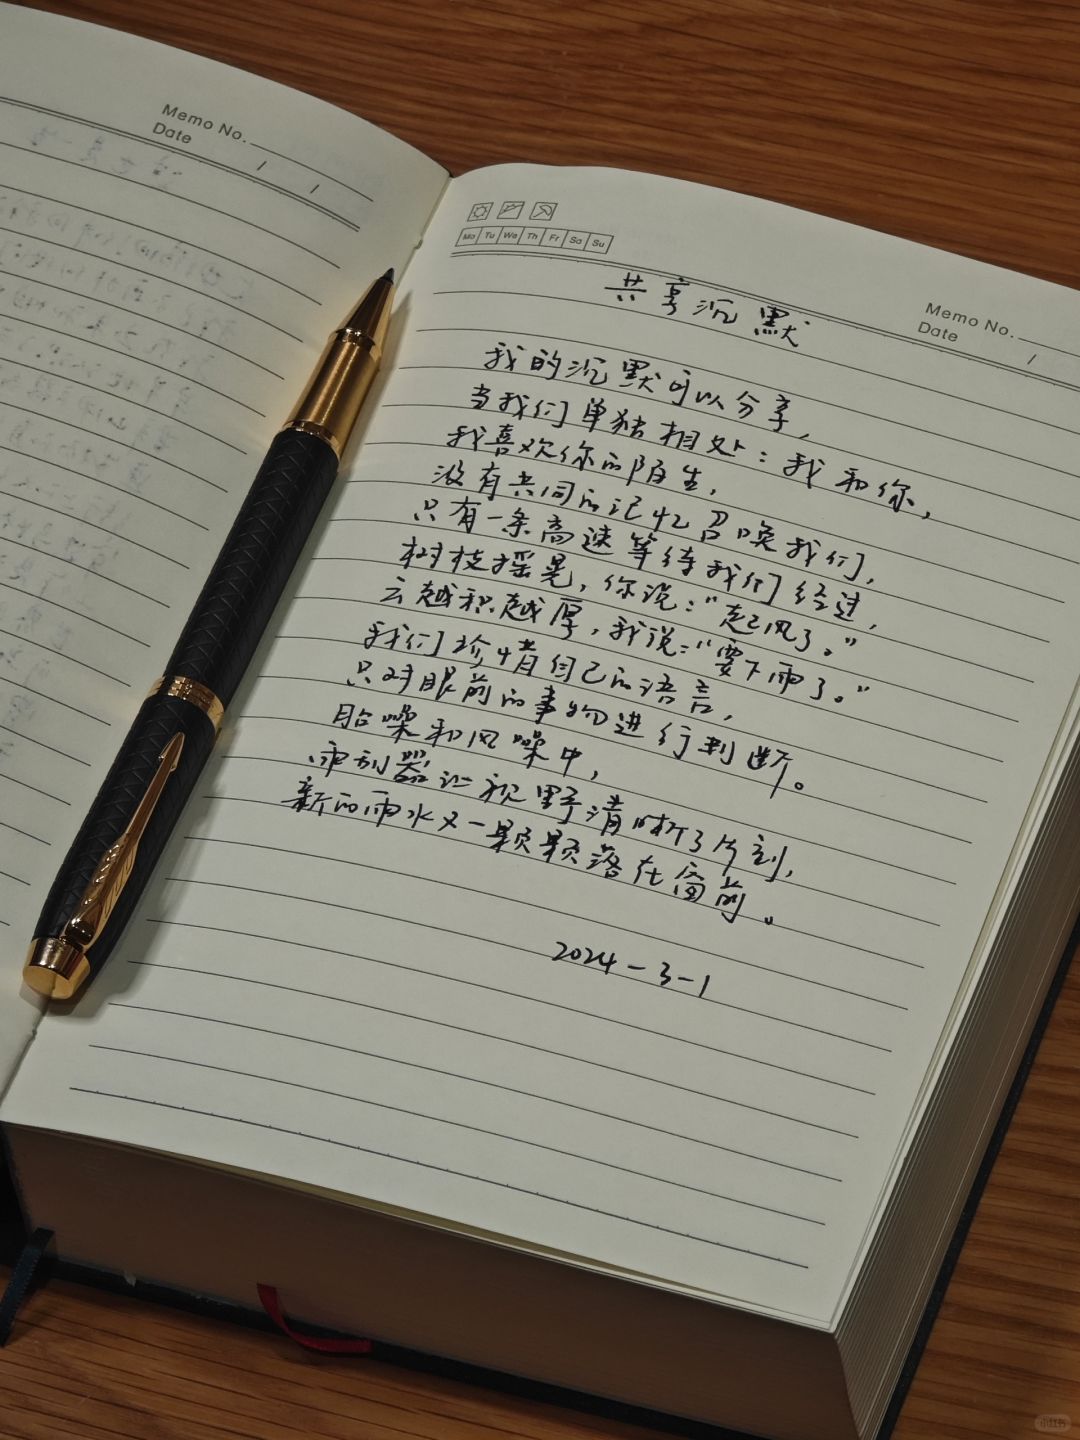 Memo No.
Date / /
Mo Tu We Th Fr Sa Su
Memo No.
Date /
共享沉默
我的沉默可以分享,
当我们单独相处:我和你,
我喜欢你的陌生,
没有共同的记忆召唤我们,
只有一条高速等待我们经过,
树枝摇晃,你说:“起风了。”
云越积越厚,我说:“要下雨了。”
我们珍惜自己的语言,
只对眼前的事物进行判断。
胎噪和风噪中,
雨刮器让视野清晰了片刻,
新的雨水又一颗颗落在窗前。
2024-3-1
小红书